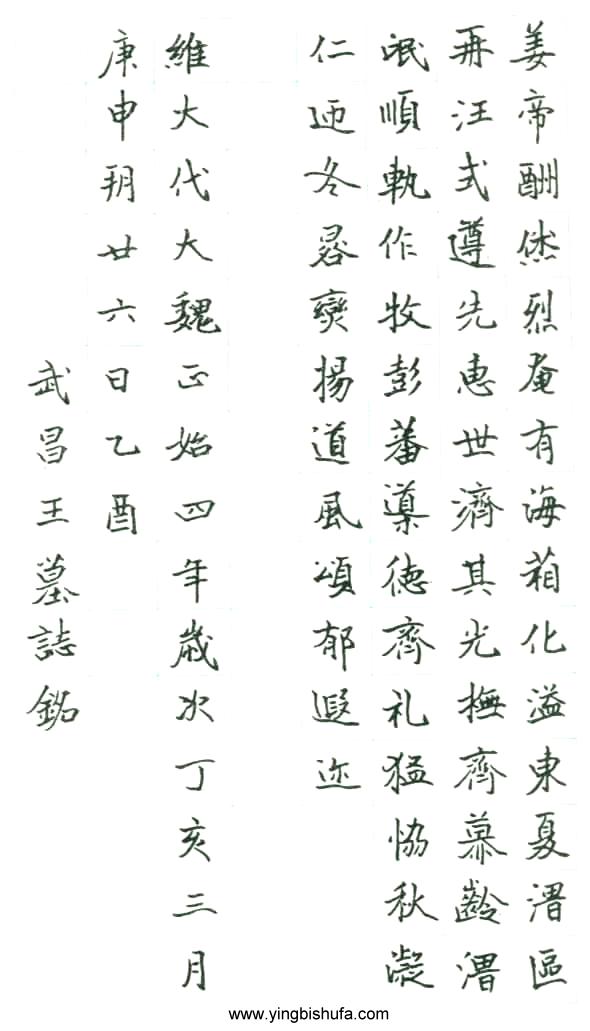 姜帝酬烋烈奄有海葙化溢東夏區
再汪式遵先惠世濟其光撫齊慕齡
氓順軌作牧彭蕃導德齊礼猛恊秋凝
仁迊冬晷奱揚道風頌郁遐迩
維大代大魏正始四年歲次丁亥三月
庚申朔廿六日乙酉
武昌王墓誌銘
www.yingbishufa.com